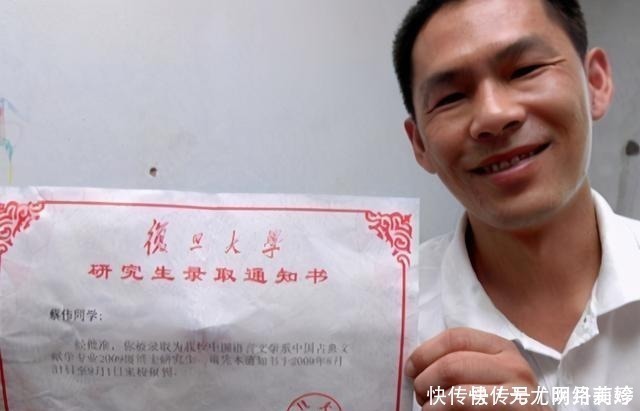 復旦大学
研究生录取通知书
蔡伟同学：
经批准，你被录取为我校中国语言文学系中国古典文
献学专业2009级博士研究生，请凭本通知书于2009年8月
31日至9月1日来校报到。
快传号